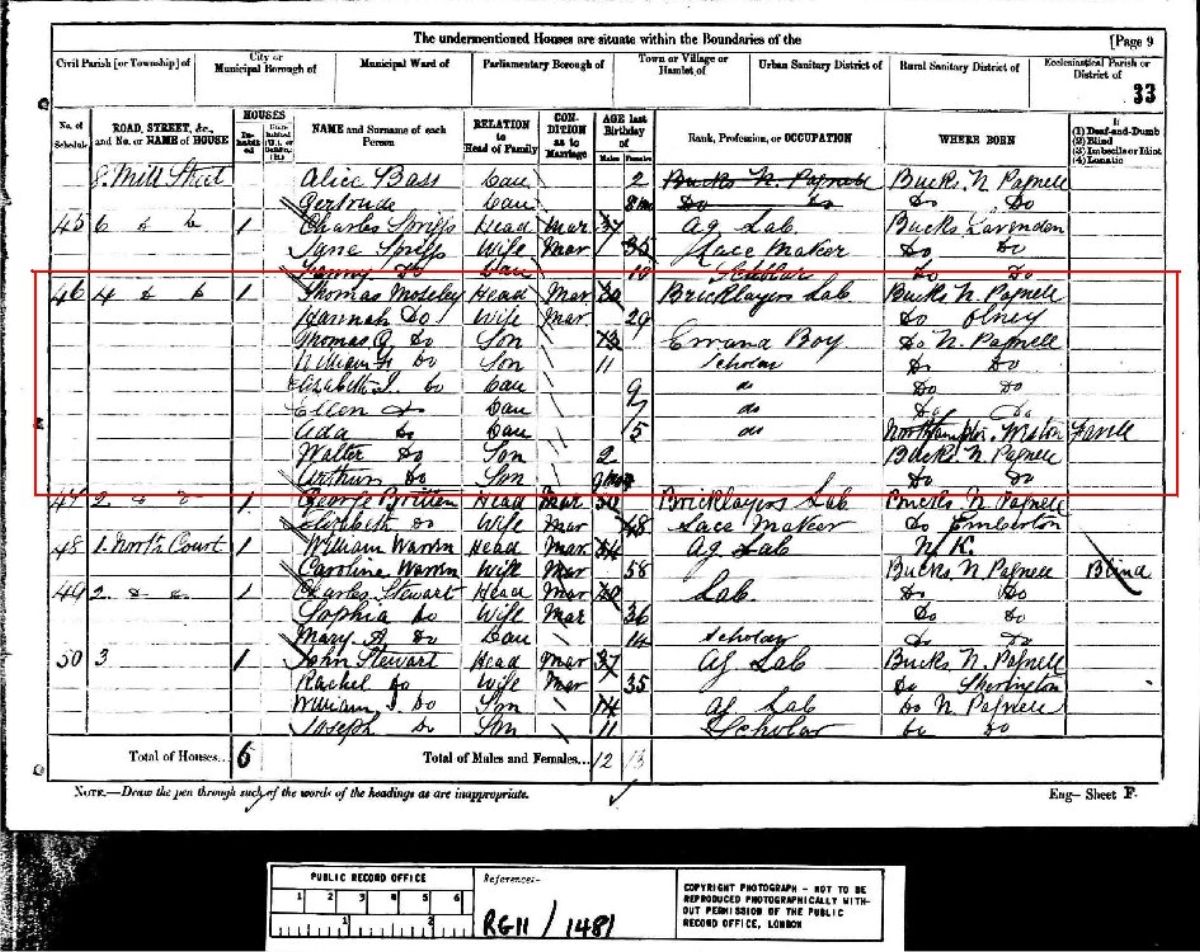 The undermentioned Houses are situate within the Boundaries of the [Page 9
Civil Parish [or Township] of City or Municipal Borough of Municipal Ward of Parliamentary Borough of Town or Village or Hamlet of Urban Sanitary District of Rural Sanitary District of Ecclesiastical Parish or District of
33
No. of Schedule ROAD, STREET, &c., and No. or NAME of HOUSE HOUSES Inhabited NAME and Surname of each Person RELATION to Head of Family CONDITION as to Marriage AGE last Birthday of Males Females Rank, Profession, or OCCUPATION WHERE BORN (1) Deaf-and-Dumb (2) Blind (3) Imbecile or Idiot (4) Lunatic
8. Mill Street Alice Bass Dau 2 Bucks N. Pagnell Bucks. N Pagnell
Gertrude Dau 8 m Do Do Do Do
45 6 1 Charles Head Mar 37 Ag Lab. Bucks Lavendon
Wife Mar 35 Lace Maker Do Do
Fanny Do Dau 10 Scholar Do Do
46 4 1 Thomas Moseley Head Mar Bricklayers Lab Bucks N. Pagnell
Hannah Do Wife Mar 29 Do Olney
Thomas G Do Son 13 Errand Boy Do N. Pagnell
William Do Son 11 Scholar Do Do
Elizabeth Do Dau 9 do Do Do
Ellen Do Dau 7 do Do Do
Ada Do Dau 5 do Northampton. Weston Favell
Walter Do Son 2 Bucks N. Pagnell
Arthur Do Son 9 mos Do Do
47 2 1 George Britten Head Mar 50 Bricklayers Lab Bucks N Pagnell
Elizabeth Do Wife Mar 48 Lace Maker Do Emberton
48 1. North Court 1 William Warren Head Mar 54 Ag Lab N. K.
Caroline Warren Wife Mar 58 Bucks N Pagnell Blind
49 2 1 Charles Stewart Head Mar 40 Lab. Do Do
Sophia Do Wife Mar 36 Do Do
Mary A Do Dau 14 Scholar Do Do
50 3 1 John Stewart Head Mar 37 Ag Lab Bucks N. Pagnell
Rachel Do Wife Mar 35 Do Sherington
William J. Do Son 14 Ag Lab Do N Pagnell
Joseph Do Son 11 Scholar Do Do
Total of Houses... 6 Total of Males and Females... 12 13
NOTE.—Draw the pen through such of the words of the headings as are inappropriate. Eng—Sheet F.
PUBLIC RECORD OFFICE
1 2 3 4 5 6
1 2
Reference:-
RG11 / 1481
COPYRIGHT PHOTOGRAPH - NOT TO BE
REPRODUCED PHOTOGRAPHICALLY WITH-
OUT PERMISSION OF THE PUBLIC
RECORD OFFICE, LONDON